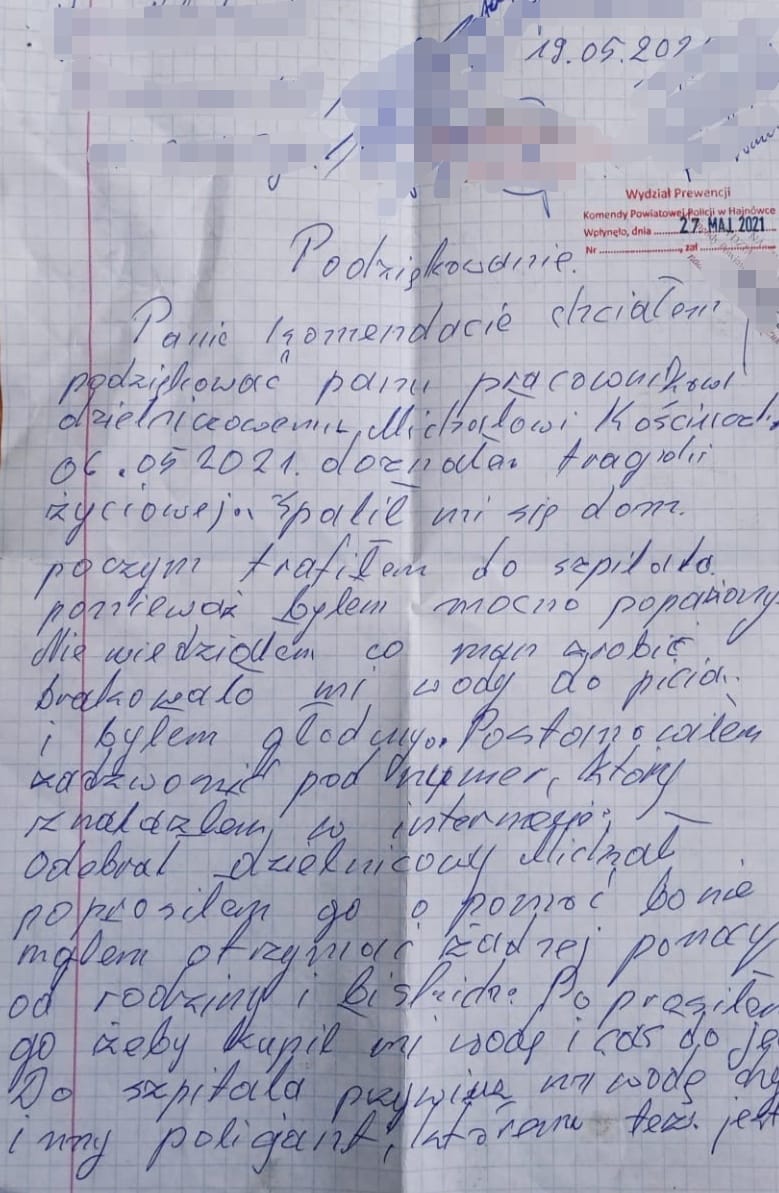 19.05.202
Wydział Prewencji
Komendy Powiatowej Policji w Hajnówce
Wpłynęło, dnia 27. MAJ. 2021
Nr ............., zał ............
Podziękowanie.
Panie komendacie chciałem
podziękować panu pracownikowi
dzielnicowemu Michałowi
06.05 2021. doznałem tragedii
życiowej. Spalił mi się dom.
poczym trafiłem do szpitala
ponieważ byłem mocno popażony
Nie wiedziałem co mam zrobić
brakowało mi wody do picia.
i byłem głodny. Postanowiłem
zadzwonić pod numer, który
znalazłem w internecie.
Odebrał dzielnicowy Michał
poprosiłem go o pomoć bo nie
mogłem otrzymać żadnej pomocy
od rodziny i bliskich. Po prosiłem
go żeby kupił mi wodę i coś do je
Do szpitala przywiuz mi wodę
inny policjant, któremu też jest